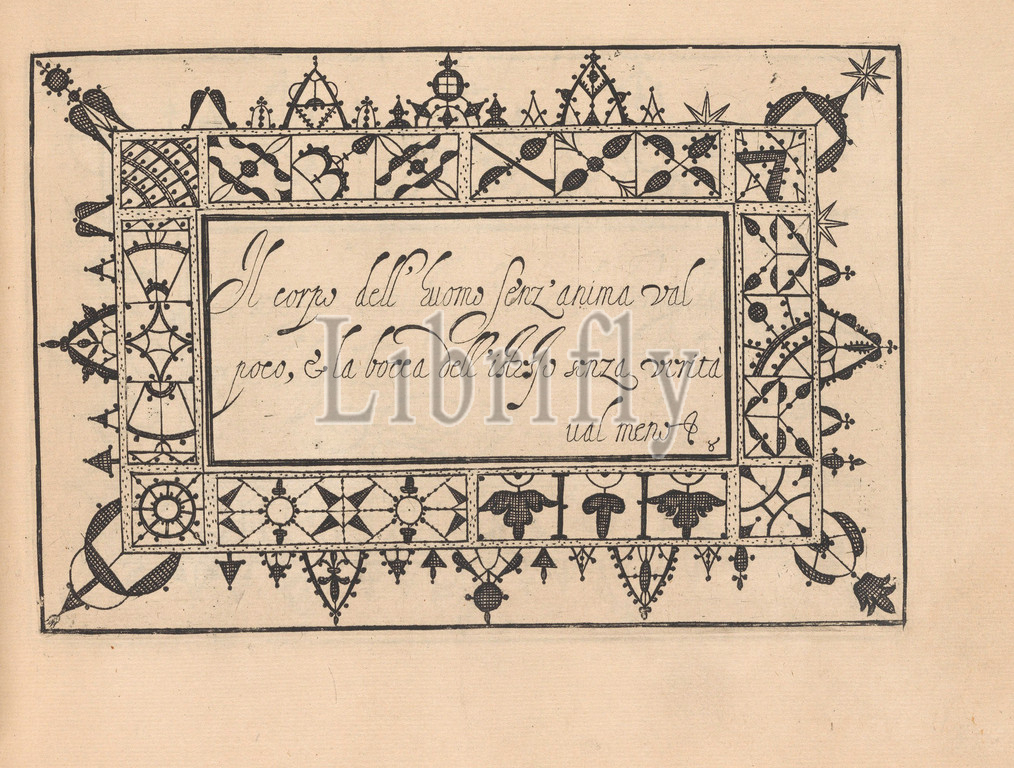 Il corpo dell'huomo senz'anima val
poco, & la bocca dell'istesso senza verità
val meno
Librifly